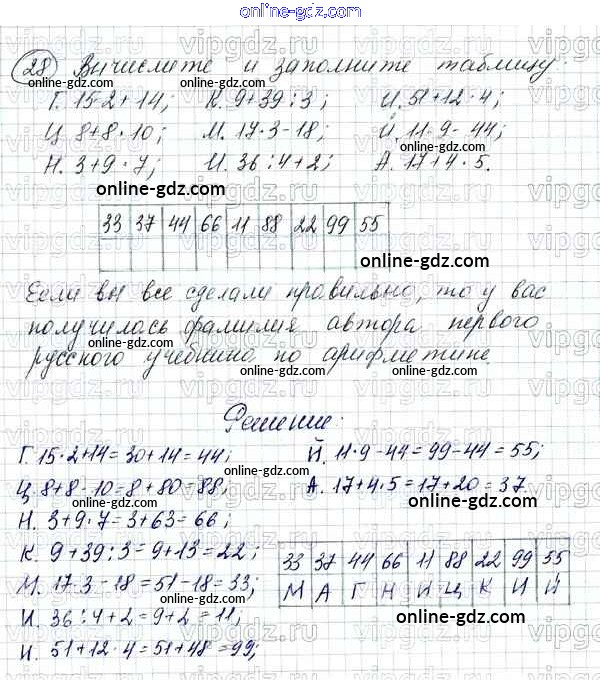 online-gdz.com
28 Вычислите и заполните таблицу:
Г. 15·2+14; К. 9+39:3; И. 51+12·4;
Ц. 8+8·10; М. 17·3-18; Й. 11·9-44;
Н. 3+9·7; И. 36:4+2; А. 17+4·5.
online-gdz.com online-gdz.com
33 37 44 66 11 88 22 99 55
online-gdz.com
Если вы все сделали правильно, то у вас
online-gdz.com
получилось фамилия автора первого
online-gdz.com
русского учебника по арифметике.
online-gdz.com
Решение:
Г. 15·2+14=30+14=44; Й. 11·9-44=99-44=55;
online-gdz.com
Ц. 8+8·10=8+80=88; А. 17+4·5=17+20=37.
online-gdz.com
Н. 3+9·7=3+63=66;
К. 9+39:3=9+13=22;
33 37 44 66 11 88 22 99 55
М А Г Н И Ц К И Й
online-gdz.com
М. 17·3-18=51-18=33;
online-gdz.com
И. 36:4+2=9+2=11;
online-gdz.com
И. 51+12·4=51+48=99;
online-gdz.com